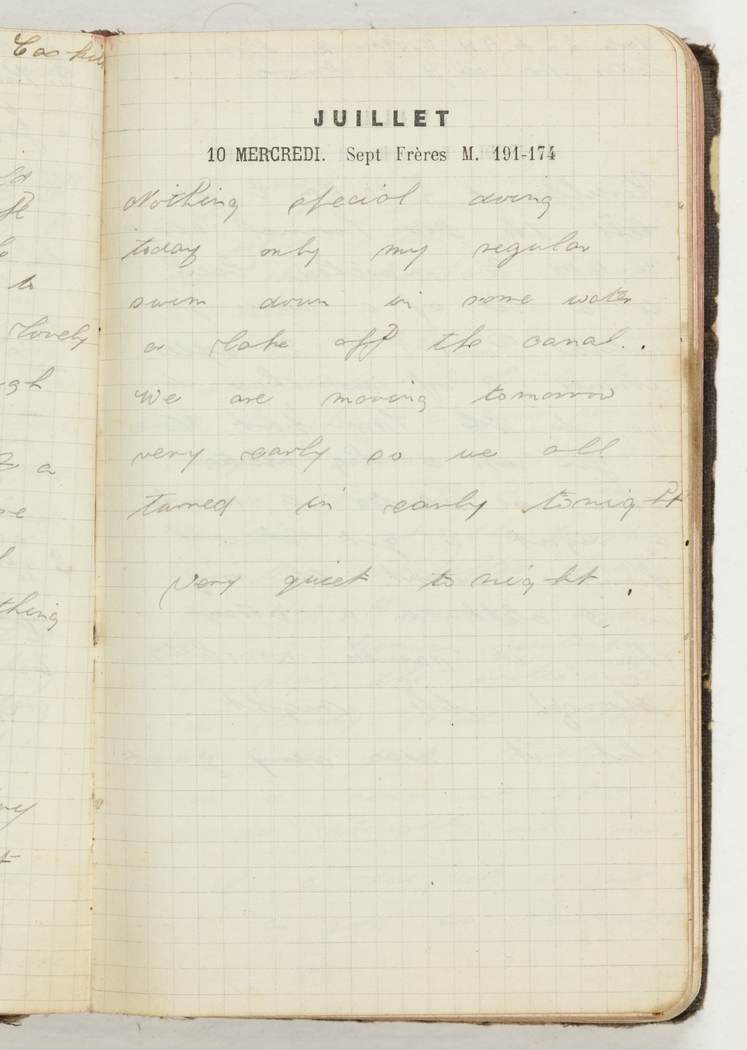 Cookie
JUILLET
10 MERCREDI. Sept Frères M. 191-174
Nothing special doing
today only my regular
swim down in some water
or lake off the canal..
We are moving tomorrow
very early so we all
turned in early tonight
very quiet to night.
to
lovely
a
thing